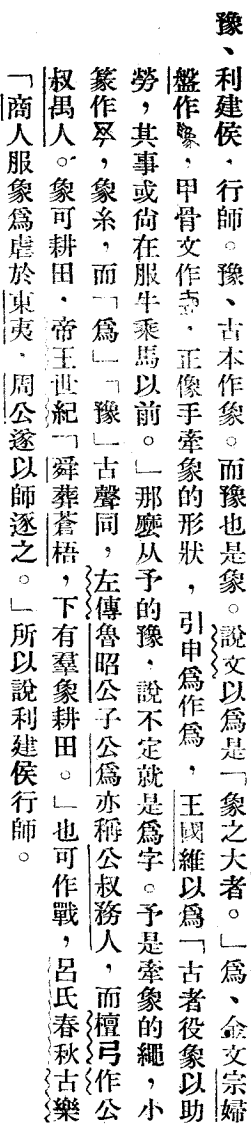 豫、利建侯．行師。豫、古本作象。而豫也是象。說文以爲是「象之大者。」爲、金文宗婦
盤作，甲骨文作，正像手牽象的形狀，引申爲作爲，王國維以爲「古者役象以助
勞，其事或尙在服牛乘馬以前。」那麼从予的豫，說不定就是爲字。予是牽象的繩，小
篆作，象糸，而「爲」「豫」古聲同，左傳魯昭公子公爲亦稱公叔務人，而檀弓作公
叔禺人。象可耕田，帝王世紀「舜葬蒼梧，下有羣象耕田。」也可作戰，呂氏春秋古樂
「商人服象爲虐於東夷，周公遂以師逐之。」所以說利建侯行師。